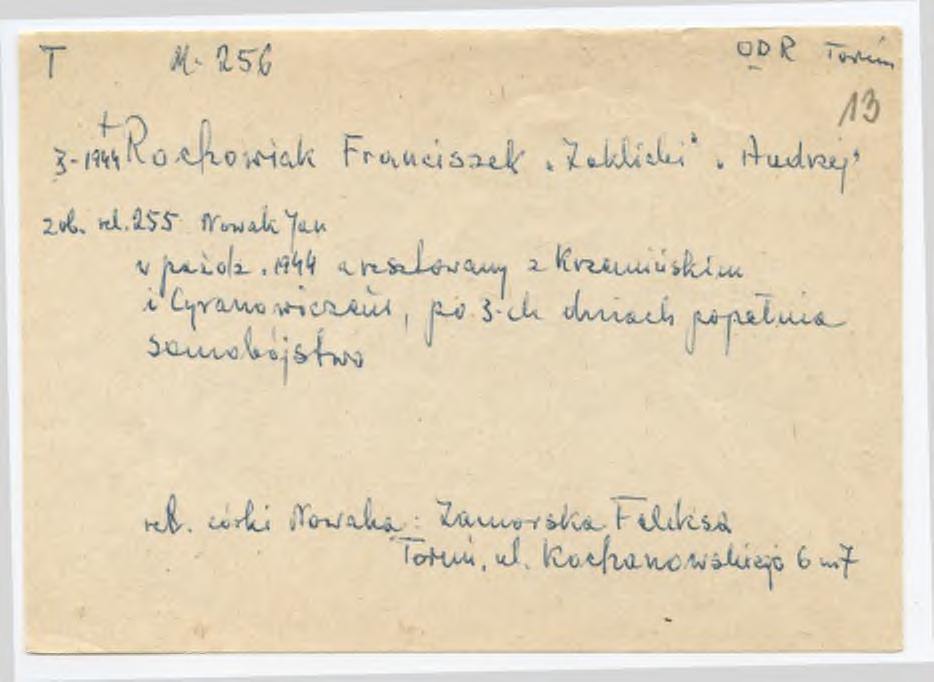 T M-256 ODR Toruń
13
+
X-1944 Rochowiak Franciszek „Zaklicki" „Andrzej"
zob. rel. 255 Nowak Jan
w paźdz. 1944 aresztowany z Krzemińskim
i Cyranowiczem, po 3-ch dniach popełnia
samobójstwo
rel. córki Nowaka: Zamorska Feliksa
Toruń, ul. Kochanowskiego 6 m 7